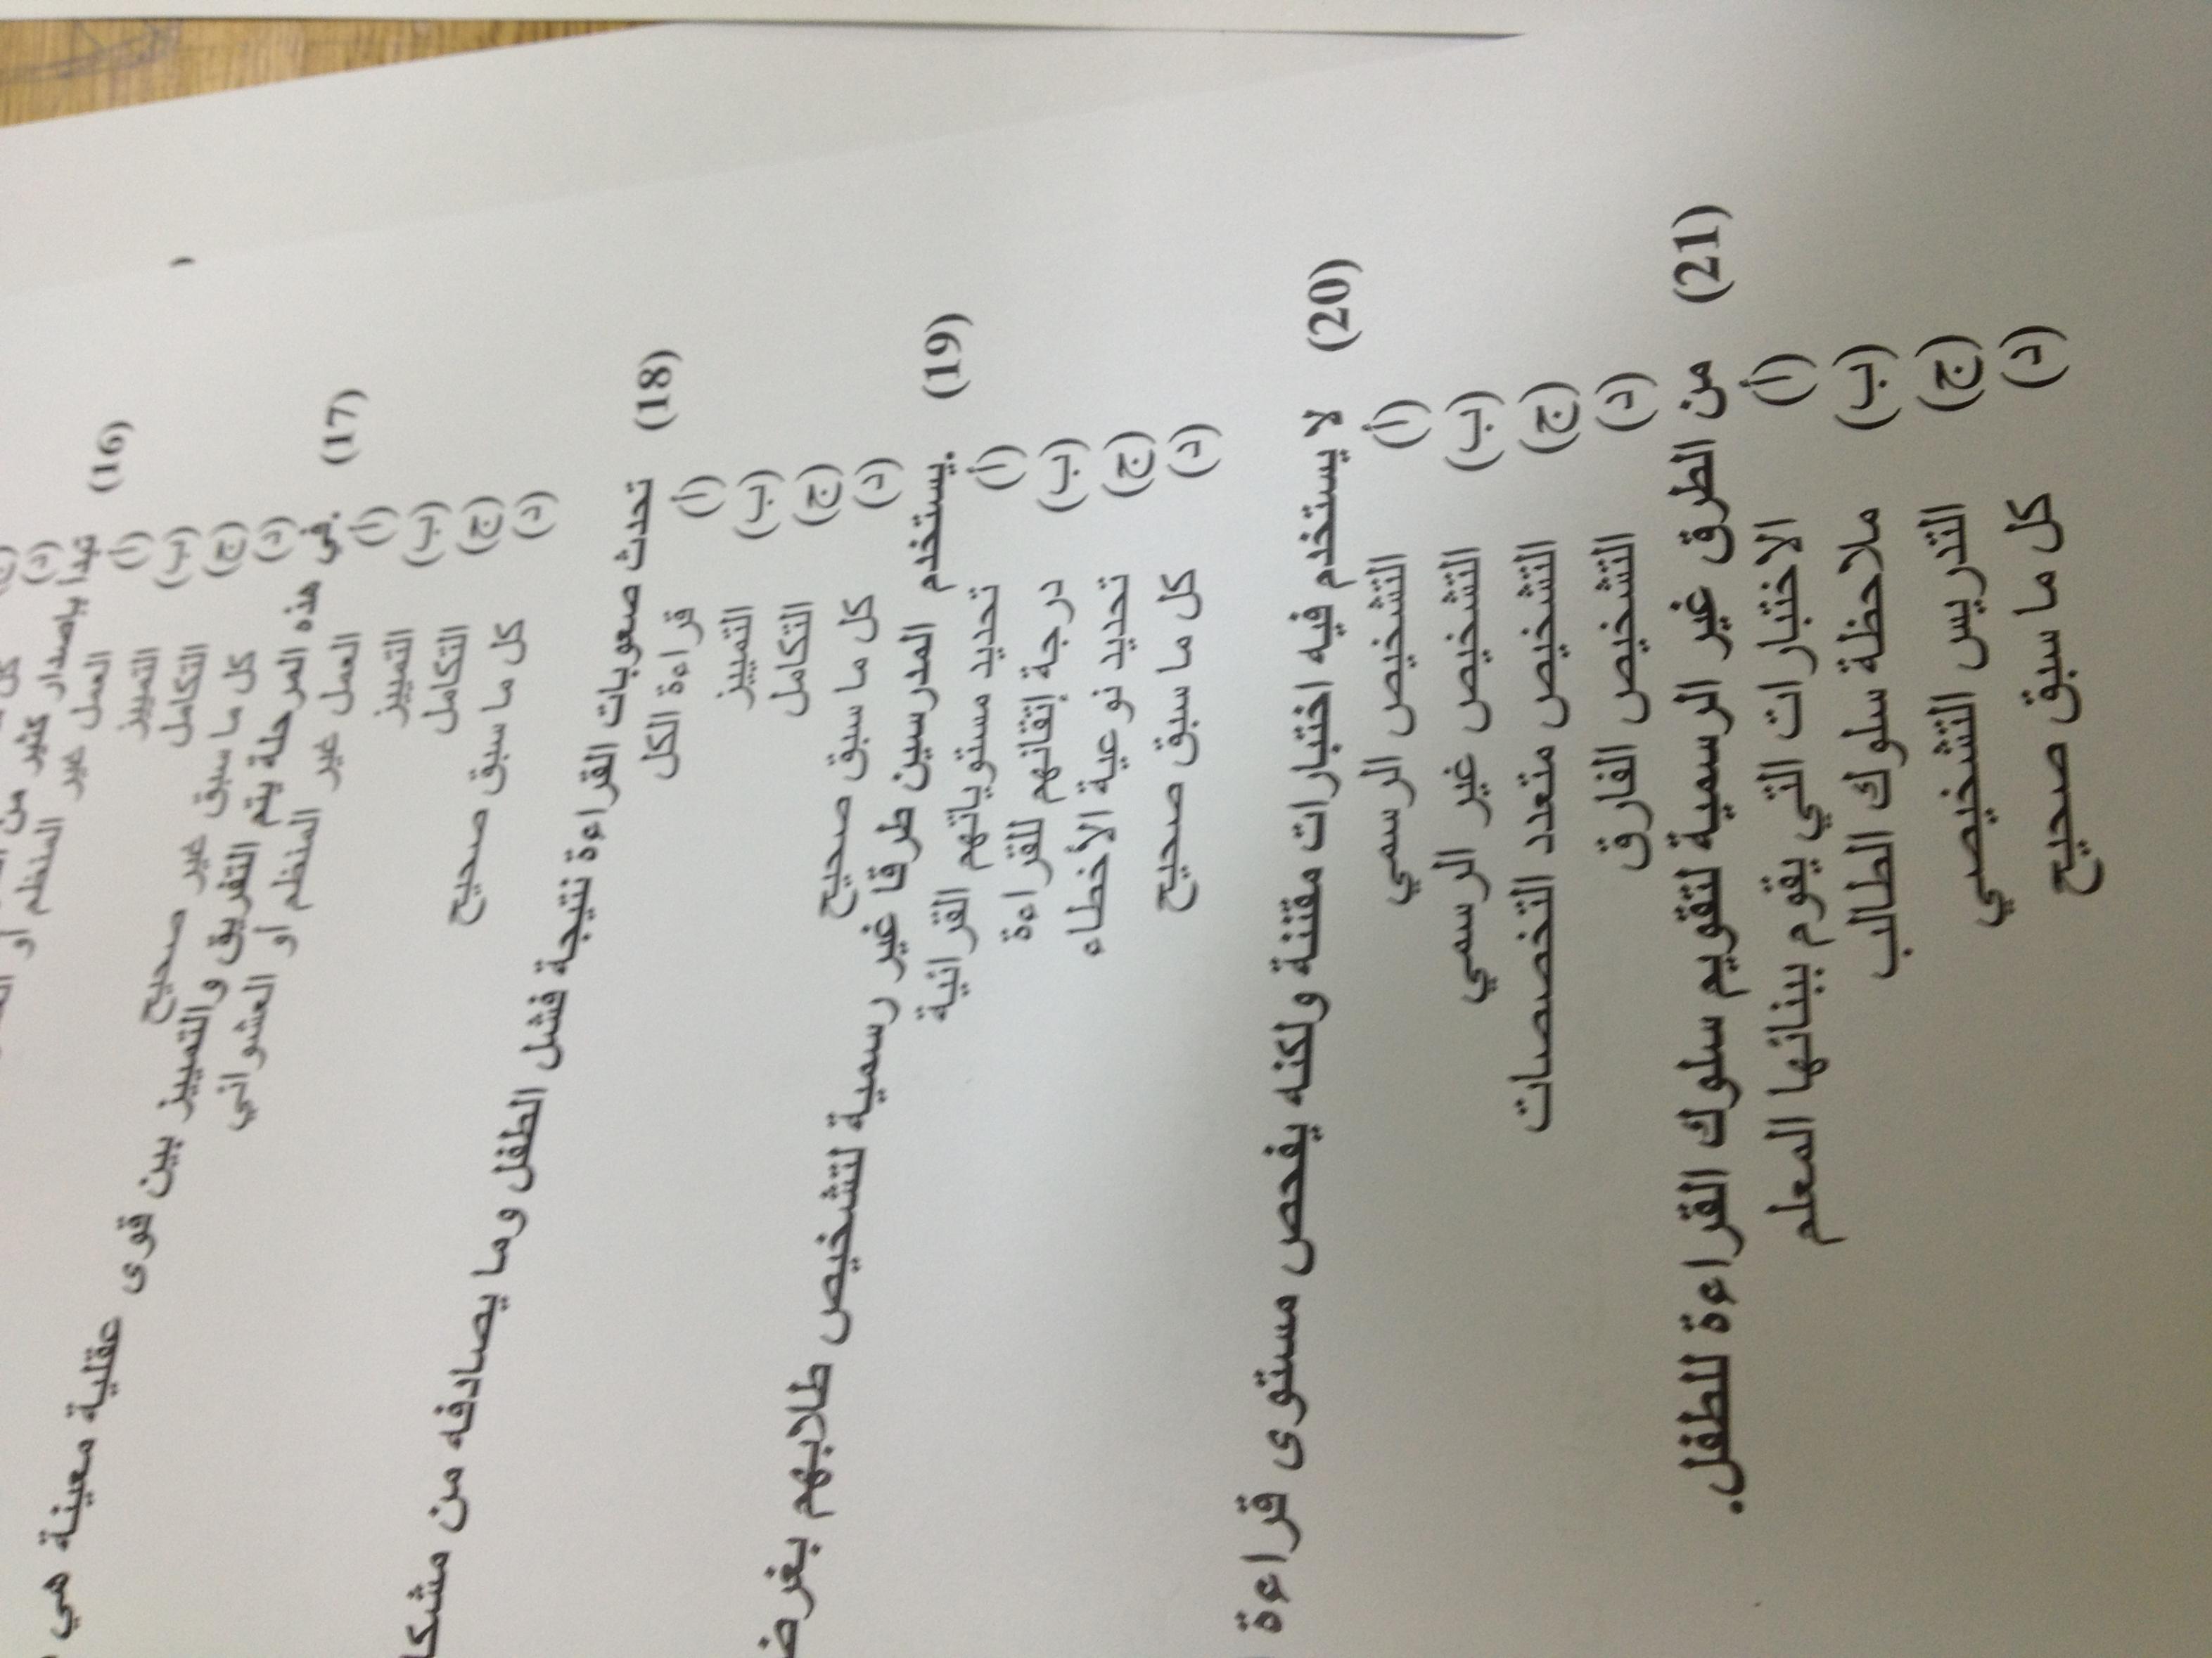 (16) تبدأ بإصدار كثير من
(أ) العمل غير المنظم أو
(ب) التمييز
(ج) التكامل
(د) كل ما سبق غير صحيح
(17) في هذه المرحلة يتم التفريق والتمييز بين قوى عقلية معينة هي
(أ) العمل غير المنظم أو العشوائي
(ب) التمييز
(ج) التكامل
(د) كل ما سبق صحيح
(18) تحدث صعوبات القراءة نتيجة فشل الطفل وما يصادفه من
(أ) قراءة الكل
(ب) التمييز
(ج) التكامل
(د) كل ما سبق صحيح
(19) يستخدم المدرسين طرقا غير رسمية لتشخيص طلابهم بغرض
(أ) تحديد مستوياتهم القرائية
(ب) درجة إتقانهم للقراءة
(ج) تحديد نوعية الأخطاء
(د) كل ما سبق صحيح
(20) لا يستخدم فيه اختبارات مقننة ولكنه يفحص مستوى قراءة
(أ) التشخيص الرسمي
(ب) التشخيص غير الرسمي
(ج) التشخيص متعدد التخصصات
(د) التشخيص الفارق
(21) من الطرق غير الرسمية لتقويم سلوك القراءة للطفل.
(أ) الاختبارات التي يقوم ببنائها المعلم
(ب) ملاحظة سلوك الطالب
(ج) التدريس التشخيصي
(د) كل ما سبق صحيح